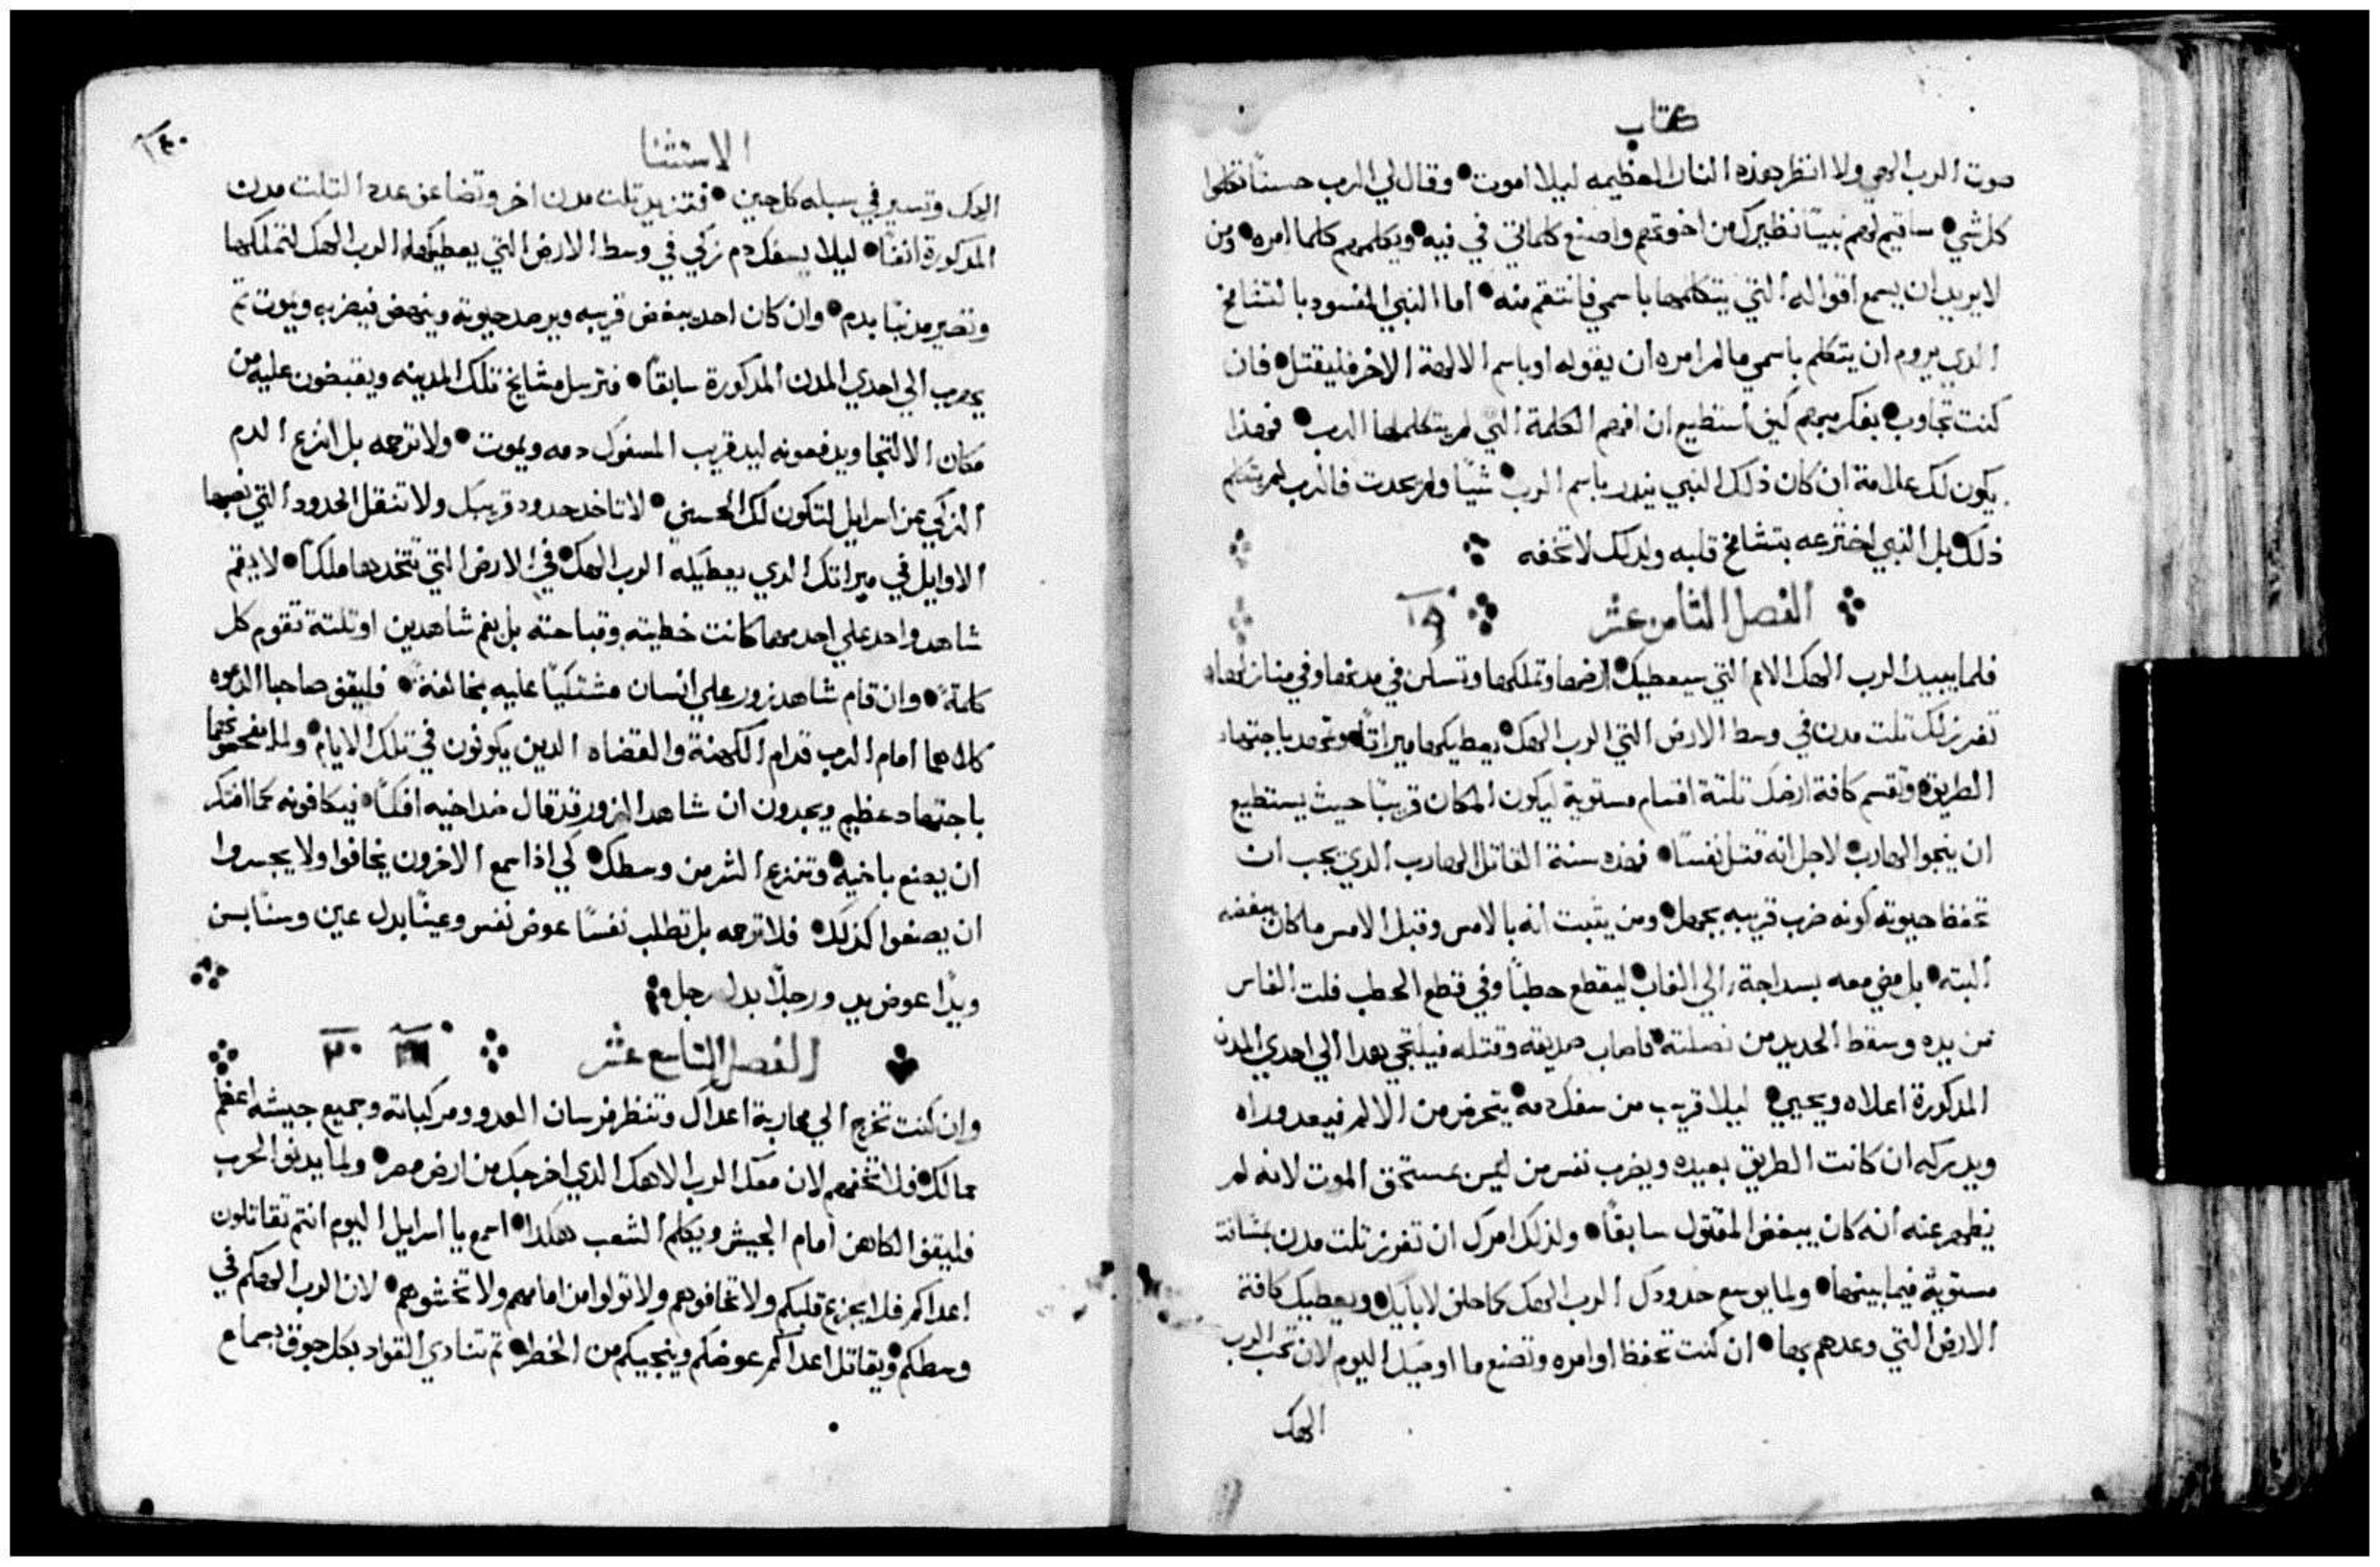 كتاب
صوت الرب الهي ولا انظر بهذه النار العظيمه ليلا اموت وقال لي الرب حسنًا تكلموا
كل شي ساقيم لهم نبيًا نظيرك من اخوتهم واضع كلماتي في فيه ويكلمهم كلما امره ومن
لا يريد ان يسمع اقواله التي يتكلمها باسمي فانتقم منه اما النبي المفسود بالتشامخ
الذي يروم ان يتكلم باسمي مالم امره ان يقوله او باسم الالهة الاخر فليقتل فان
كنت تجاوب بفكر كيف استطيع ان افهم الكلمة التي لم يتكلمها الرب فهذا
يكون لك علامة ان كان ذلك النبي باسم الرب شيًا ولم يحدث فالرب لم يتكلم
ذلك بل النبي اخترعه بتشامخ قلبه ولدلك لا تخفه
الفصل الثامن عشر ١٩
فلما يبيد الرب الهك الامم التي سيعطيك ارضها وتملكها وتسكن في مدنها وفي منازلها
تفرز لك تلت مدن في وسط الارض التي الرب الهك يعطيكها ميراتًا وتمهد باجتهاد
الطريق وتقسم كافة ارضك تلتة اقسام مستوية ليكون المكان قريبًا حيث يستطيع
ان ينجوا الهارب لاجل انه قتل نفسًا فهذه سنة القاتل الهارب الدي يجب ان
تحفظ حيوته كونه ضرب قريبه بجهل ومن يثبت انه بالامس وقبل الامس ما كان يبغضه
البته بل مضي معه بسداجة الي الغاب ليقطع حطبًا وفي قطع الحطب فلت الفاس
من يده وسقط الحديد من نصلته فاصاب صديقه وقتله فيلتجي بهدا الي احدي المدن
المدكورة اعلاه ويحيي ليلا قريب من سفك دمه يتحرض من الالم فيعد وراه
ويدركه ان كانت الطريق بعيده ويضرب نفس من ليس بمستحق الموت لانه لم
يظهر عنه انه كان يبغض المقتول سابقًا ولذلك امرك ان تفرز تلت مدن بمسافة
مستوية فيما بينها ولما يوسع حدودك الرب الهك كما حلف لابايك ويعطيك كافة
الارض التي وعدهم بها ان كنت تحفظ اوامره وتصنع ما اوصيك اليوم لان تحب الرب
الهك
١٤٠
الاستثنا
الهك وتسير في سبله كل حين فتزيد تلت مدن اخر وتضاعف عدد التلت مدن
المدكورة انفًا ليلا يسفك دم زكي في وسط الارض التي يعطيكها الرب الهك لتملكها
وتصير مدنبًا بدم وان كان احد يبغض قريبه ويرصد حيوته وينهض فيضربه ويموت تم
يهرب الي احدي المدن المدكورة سابقًا فترسل مشايخ تلك المدينه ويقبضون عليه من
مكان الالتجا ويدفعونه ليد قريب المسفوك دمه ويموت ولا ترحمه بل انزع الدم
الزكي من اسرايل لتكون لك الحسني لا تاخد حدود قريبك ولا تنقل الحدود التي نصبها
الاوايل في ميراتك الدي يعطيكه الرب الهك في الارض التي تتخدها ملكًا لا يقم
شاهد واحد علي احد مهما كانت خطيته وقباحته بل بفم شاهدين او تلتة تقوم كل
كلمة وان قام شاهد زور علي انسان مشتكيًا عليه بمخالفة فليقف صاحبا الدعوه
كلاهما امام الرب قدام الكهنة والقضاه الدين يكونون في تلك الايام ولما
باجتهاد عظيم ويجدون ان شاهد الزور قد قال ضد اخيه افكًا فيكافونه كما افتكر
ان يصنع باخيه وتنزع الشر من وسطك كي اذا سمع الاخرون يخافوا ولا يجسروا
ان يصنعوا كدلك فلا ترحمه بل تطلب نفسًا عوض نفس وعينًا بدل عين وسنًا بسن
ويدًا عوض يد ورجلًا بدل رجل
الفصل التاسع عشر ٢٠
وان كنت تخرج الي محاربة اعداك وتنظر فرسان العدو ومركباته وجميع جيشه اعظم
مما لك فلا تخفهم لان معك الرب الاهك الدي اخرجك من ارض مصر ولما يدنو الحرب
فليقف الكاهن امام الجيش ويكلم الشعب هكدا اسمع يا اسرايل اليوم انتم تقاتلون
اعداكم فلا يجزع قلبكم ولا تخافوهم ولا تولوا من امامهم ولا تخشوهم لان الرب الهكم في
وسطكم ويقاتل اعداكم عوضكم وينجيكم من الخطر تم تنادي القواد بكل جوق بسماع